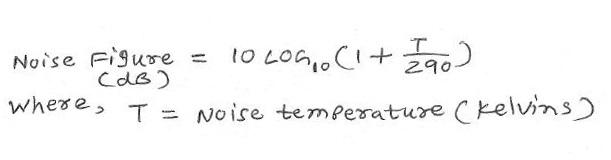 Noise Figure (dB) = 10 LOG₁₀ (1 + T/290)
where, T = Noise temperature (kelvins)